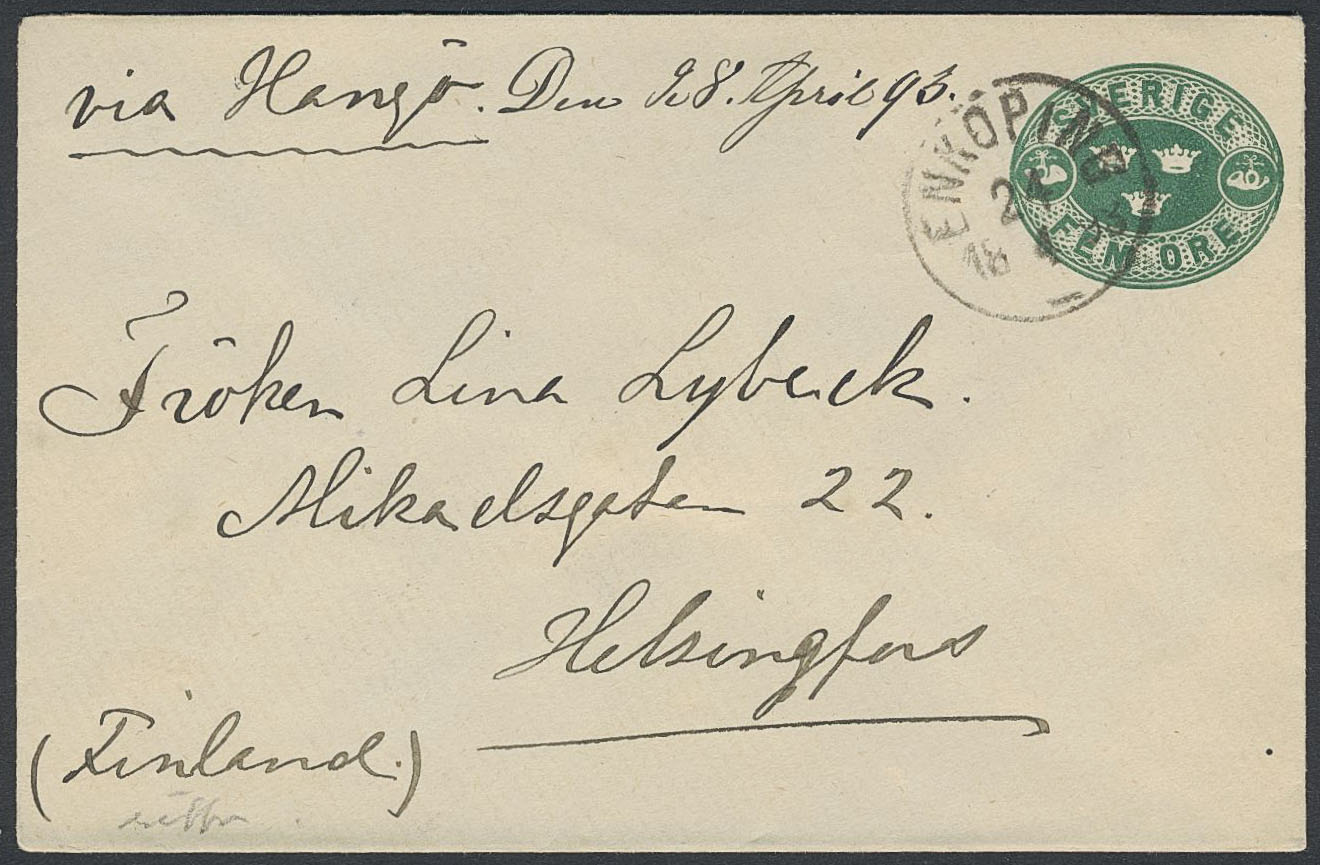 via Hangö. Den 28. April 93.
SVERIGE
FEM ÖRE
ENKÖPING
24
18 4 93
Fröken Lina Lybeck.
Mikaelsgatan 22.
Helsingfors
(Finland.)